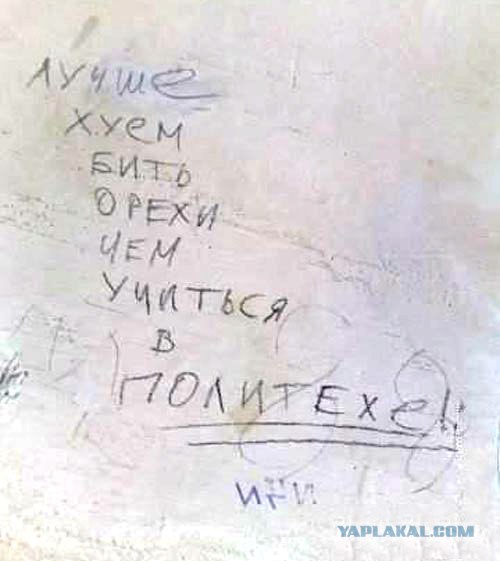 ЛУЧШЕ
ХУЕМ
БИТЬ
ОРЕХИ
ЧЕМ
УЧИТЬСЯ
В
ПОЛИТЕХЕ!!
YAPLAKAL.COM